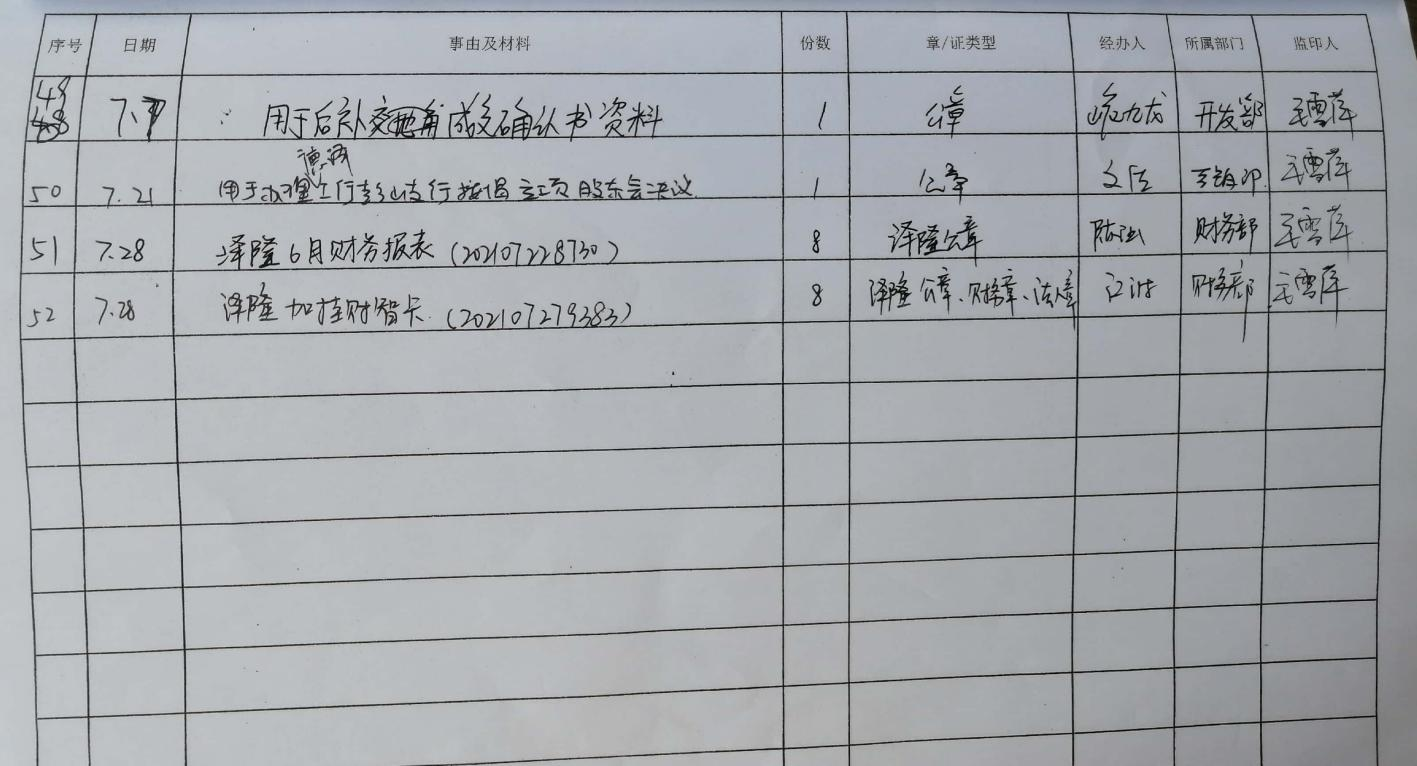 序号 日期 事由及材料 份数 章/证类型 经办人 所属部门 监印人
49 7.7 用于后补交地角成交确认书资料 1 公章 九龙 开发部 王雪萍
德源
50 7.21 用于办理工行彭山支行按揭立项股东会决议 1 公章 文 营销部 王雪萍
51 7.28 泽隆6月财务报表(202107228730) 8 泽隆公章 陈 财务部 王雪萍
52 7.28 泽隆加挂财智卡(202107279383) 8 泽隆公章、财务章、法人章 财务部 王雪萍